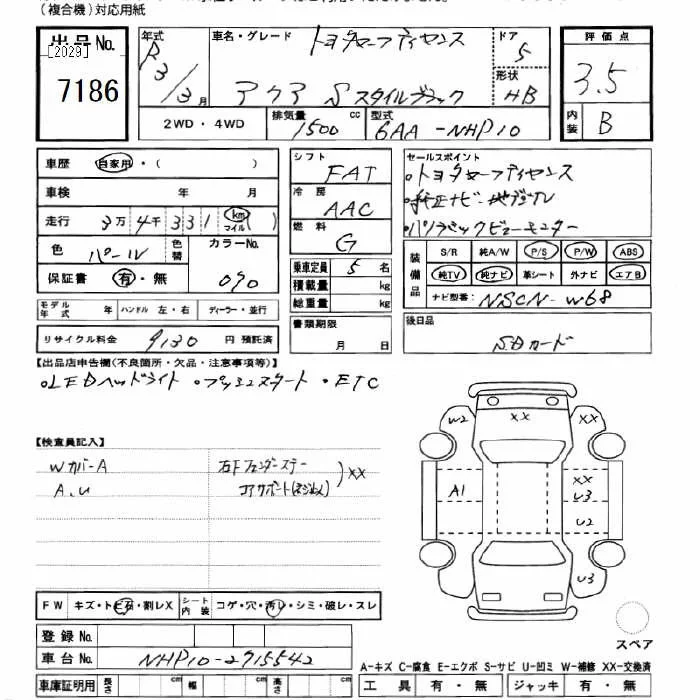 (複合機)対応用紙
出品No.
[2029]
7186
年式 R3/3月
車名・グレード トヨタセーフティセンス
アクア Sスタイルブラック
ドア 5
形状 HB
評価点
3.5
内装 B
2WD・4WD
排気量 1500 cc
型式 6AA-NHP10
車歴 自家用・( )
車検 年 月
走行 3万4千331 km マイル ( )
色 パール 色替 カラーNo. 070
保証書 有・無
モデル年式 年 ハンドル 左・右 ディーラー・並行
リサイクル料金 9130 円 預託済
シフト FAT
冷房 AAC
燃料 G
乗車定員 5 名
積載量 kg
総重量 kg
書類期限 月 日
セールスポイント
・トヨタセーフティセンス
・純正ナビ・地デジTV
・パノラミックビューモニター
装備品
S/R 純A/W P/S P/W ABS
純TV 純ナビ 革シート 外ナビ エアB
ナビ型番: NSCN-W68
後日品
SDカード
【出品店申告欄(不良箇所・欠品・注意事項等)】
・LEDヘッドライト ・プッシュスタート ・ETC
【検査員記入】
Wカバー A
A、U
右Fフェンダーステー
コアサポート XX
W2 XX
A1
XX
U3
U2
U3
スペア
FW キズ・トビ石・割レX シート内装 コゲ・穴・汚レ・シミ・破レ・スレ
登録No.
車台No. NHP10-2715542
車庫証明用 長さ cm 幅 cm 高さ cm
A-キズ C-腐食 E-エクボ S-サビ U-凹ミ W-補修 XX-交換済
工具 有・無 ジャッキ 有・無